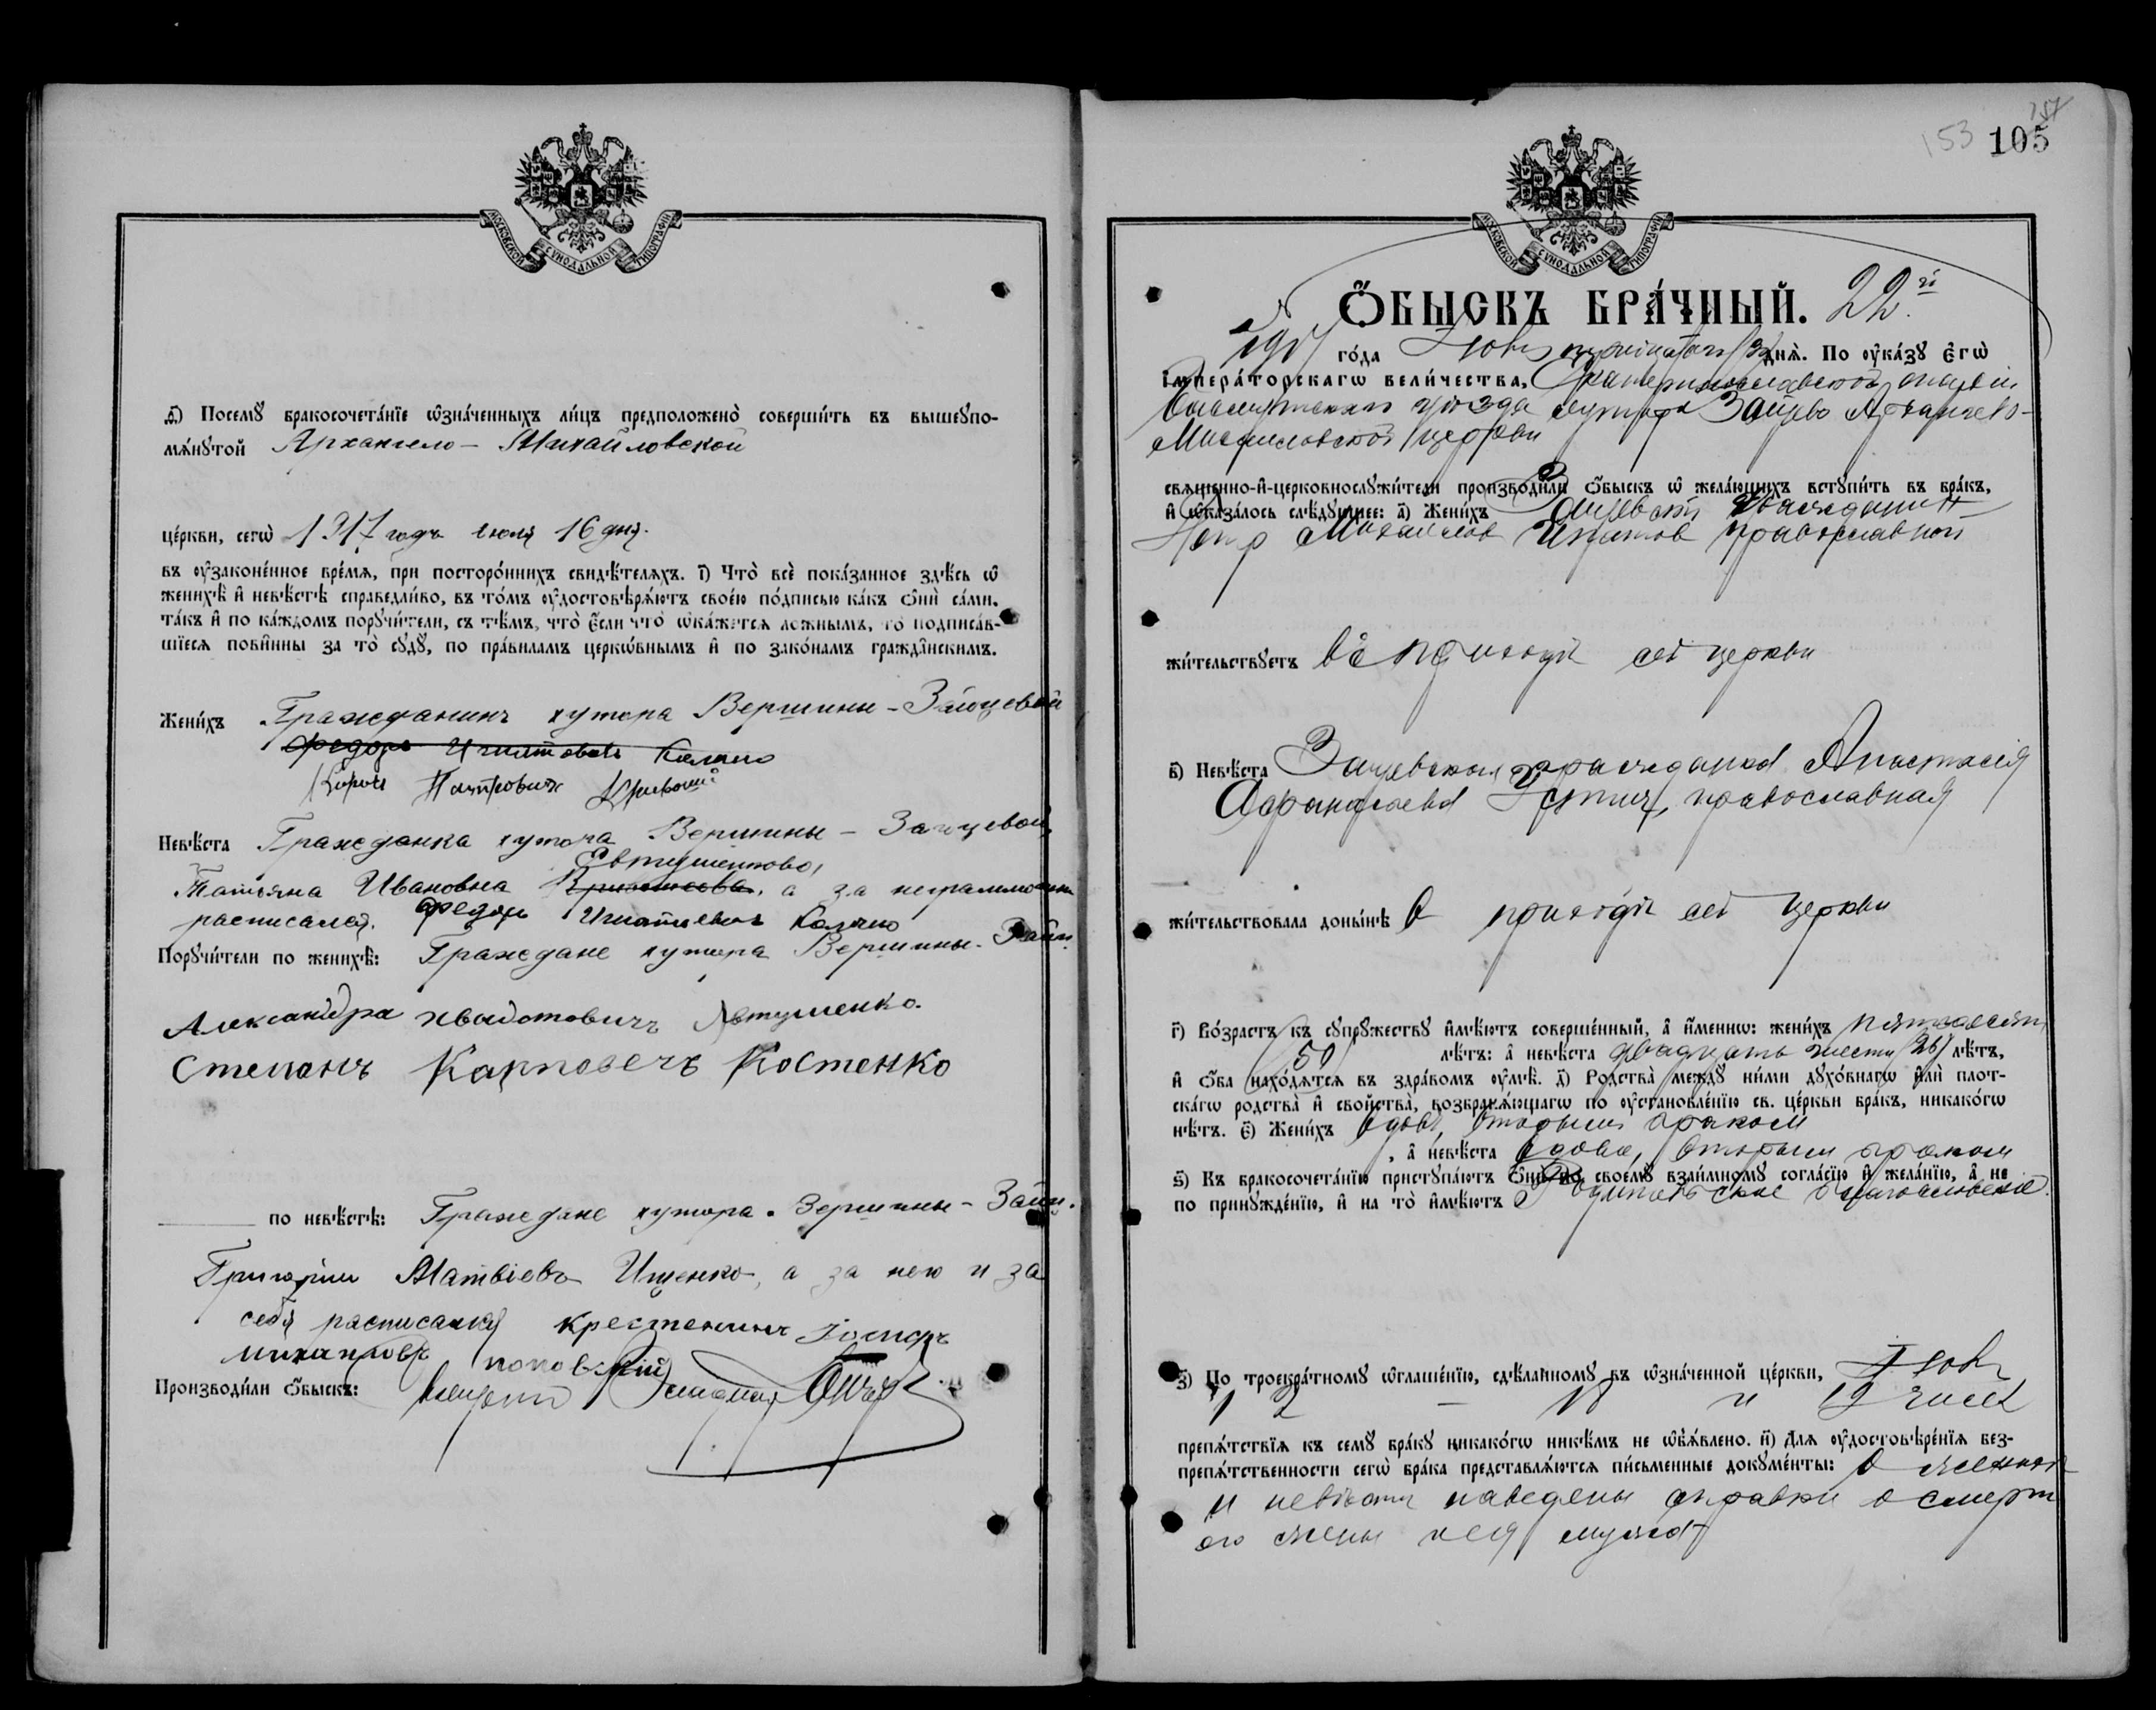 МОСКОВСКОЙ СѴНОДАЛЬНОЙ ТИПОГРАФІИ
д҃) Посемꙋ̀ бракосочета́нїе ѡ҆зна́ченныхъ ли́цъ предположено̀ соверши́ть въ вышеꙋпо-
мѧ́нꙋтой Архангело - Михайловской
це́ркви, сегѡ̀ 1917 года іюля 16 дня.
въ ᲂу҆законе́нное вре́мѧ, при посторо́ннихъ свидѣ́телѧхъ. і҃) Что̀ всѐ пока́занное здѣ́сь ѡ҆
женихѣ̀ и҆ невѣ́стѣ справедли́во, въ то́мъ ᲂу҆достовѣрѧ́ютъ свое́ю по́дписью ка́къ ѻ҆нѝ са́ми,
та́къ и҆ по ка́ждомъ порꙋчи́тели, съ тѣ́мъ, что̀ є҆́сли что̀ ѡ҆ка́жетсѧ ло́жнымъ, то̀ подписа́в-
шїесѧ пови́нны за то̀ сꙋдꙋ̀, по пра́виламъ церко́внымъ и҆ по зако́намъ гражда́нскимъ.
Жени́хъ Гражданинъ хутора Вершины - Зайцевой
Федоръ Игнатовъ Калино
Невѣ́ста Гражданка хутора Вершины - Зайцевой,
Евтушенкова,
Татьяна Ивановна а за неграмотн
расписался Федоръ Игнатьевъ
Порꙋчи́тели по женихѣ̀: Граждане хутора Вершины - Зайц.
Александра Автушенко.
Степанъ Карповечъ Костенко
по невѣ́стѣ: Граждане хутора Вершины - Зайц.
Григорiй Матвіевъ Ищенко, а за нею и за
себя расписался крестенинъ
поповский
Производи́ли ѻ҆́быскъ:
153 105
МОСКОВСКОЙ СѴНОДАЛЬНОЙ ТИПОГРАФІИ
Ѻ҆́БЫСКЪ БРА́ЧНЫЙ. 22й
1917 го́да дня̀. По ᲂу҆ка́зꙋ є҆гѡ̀
і҆мпера́торскагѡ вели́чества, Екатеринославской епархіи
Бахмутскаго уѣзда хутора Зайцево Архангело-
Михайловской церкви
свѧще́нно-и҆-церковнослꙋжи́тели производи́ли ѻ҆́быскъ ѡ҆ жела́ющихъ встꙋпи́ть въ бра́къ,
и҆ ѡ҆каза́лось слѣ́дꙋющее: а҃) Жени́хъ Зайцевскій гражданин
Петр Михайлов Игнатов православный
жи́тельствꙋетъ въ приходѣ сей церкви
в҃) Невѣ́ста Зайцевская гражданка Анастасія
православная
жи́тельствовала доны́нѣ в приходѣ сей церкви
г҃) Во́зрастъ къ сꙋпрꙋ́жествꙋ и҆мѣ́ютъ соверше́нный, а҆ и҆́менно: жени́хъ пятьдесят
(50) лѣ́тъ: а҆ невѣ́ста двадцать шести (26) лѣ́тъ,
и҆ ѻ҆́ба нахо́дѧтсѧ въ здра́вомъ ᲂу҆мѣ̀. д҃) Родства̀ междꙋ̀ ни́ми дꙋхо́внагѡ и҆лѝ пло́т-
ска́гѡ родства̀ и҆ сво́йства, возбранѧ́ющагѡ по ᲂу҆становле́нїю св. це́ркви бра́къ, никако́гѡ
нѣ́тъ. є҃) Жени́хъ вдовъ, вторым браком
, а҆ невѣ́ста вдова, вторым браком
ѕ҃) Къ бракосочета́нїю пристꙋпа́ютъ ѻ҆нѝ по своемꙋ̀ взаи́мномꙋ согла́сїю и҆ жела́нїю, а҆ не
по принꙋжде́нїю, и҆ на то̀ и҆мѣ́ютъ родительское благословеніе.
з҃) По троекра́тномꙋ ѡ҆глаше́нїю, сдѣ́ланномꙋ въ ѡ҆зна́ченной це́ркви,
и 19 числа
препѧ́тствїѧ къ семꙋ̀ бра́кꙋ никако́гѡ никѣ́мъ не ѡ҆б̾ѧ́влено. и҃) Длѧ ᲂу҆достовѣре́нїѧ без-
препѧ́тственности сегѡ̀ бра́ка представлѧ́ютсѧ пи́сьменные докꙋме́нты: о женихѣ
и невѣстѣ наведены справки о смерт
его жены и ея мужа